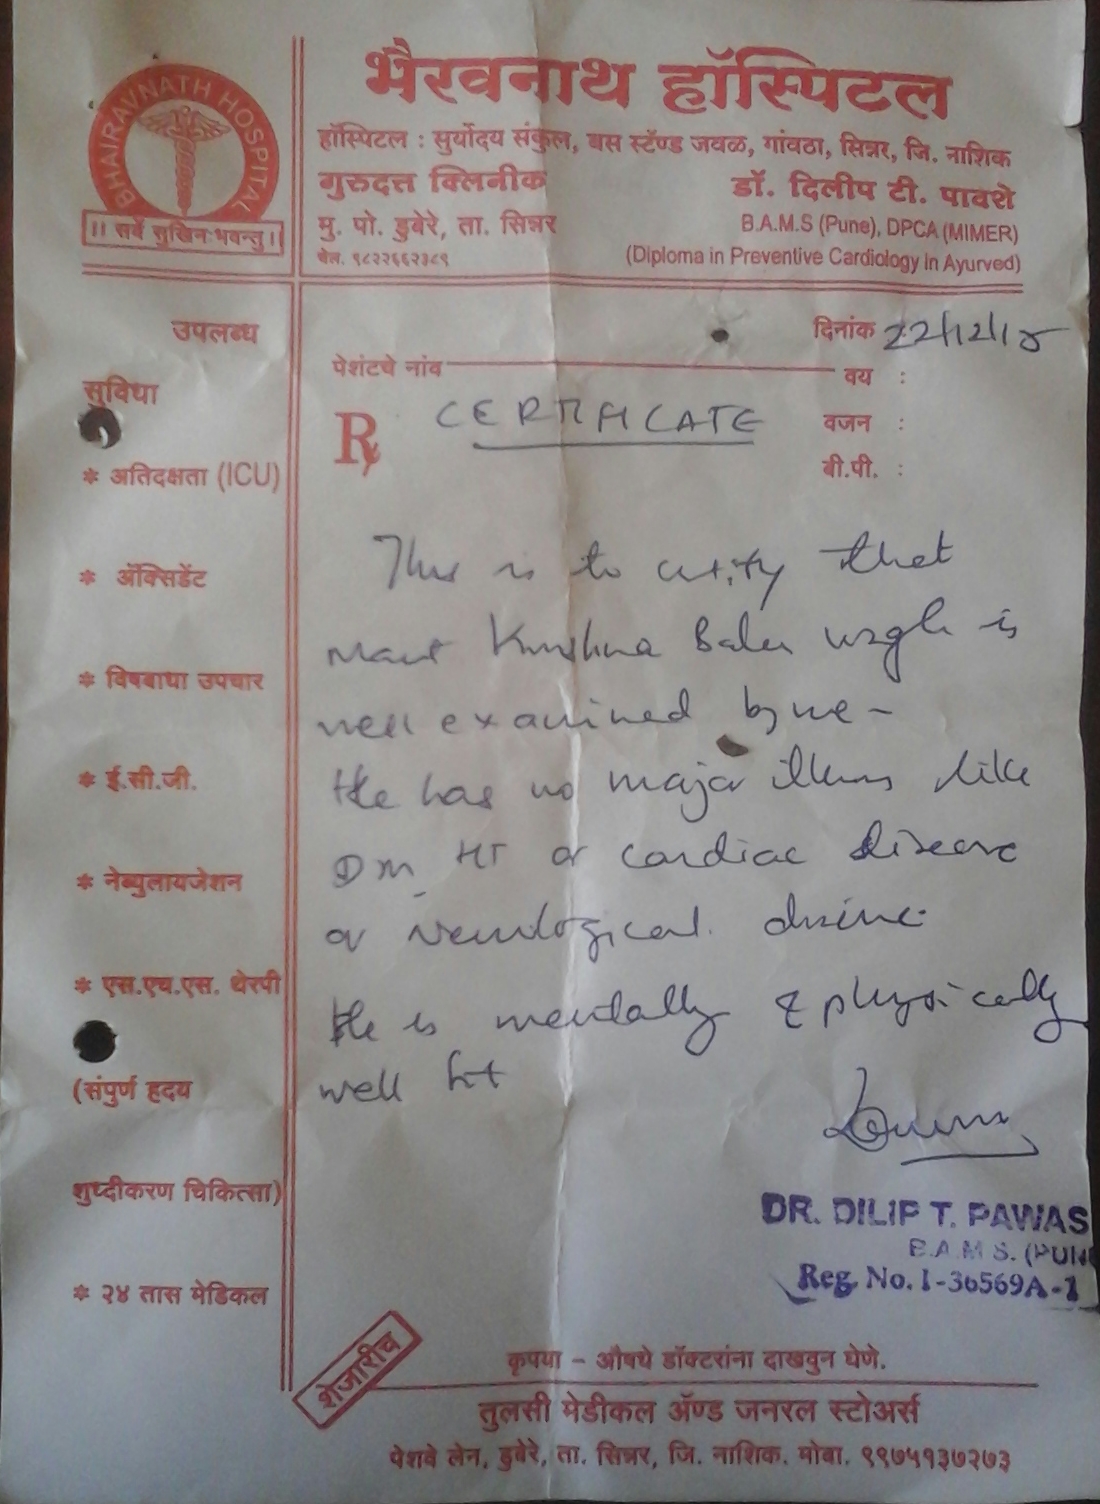 भैरवनाथ हॉस्पिटल
BHAIRAVNATH HOSPITAL
।। सर्वे सुखिनःभवन्तु ।
हॉस्पिटल : सुर्योदय संकुल, बस स्टॅण्ड जवळ, गांवठा, सिन्नर, जि. नाशिक
गुरुदत्त क्लिनीक
डॉ. दिलीप टी. पावशे
मु. पो. डुबेरे, ता. सिन्नर
B.A.M.S (Pune), DPCA (MIMER)
मोब. ९८२२६६२३८९
(Diploma in Preventive Cardiology in Ayurved)
उपलब्ध
सुविधा
* अतिदक्षता (ICU)
* ॲक्सिडेंट
* विषबाधा उपचार
* ई.सी.जी.
* नेब्युलायजेशन
* एस.एच.एस. थेरपी
(संपुर्ण हृदय
शुध्दीकरण चिकित्सा)
* २४ तास मेडिकल
दिनांक 22/12/15
पेशंटचे नांव
वय :
वजन :
बी.पी. :
Rx
CERTIFICATE
This is to certify that
Krushna is
well examined by me -
He has no major illness like
DM, HT or cardiac disease
or neurological disease
He is mentally & physically
well fit
DR. DILIP T. PAWAS
B.A.M.S. (PUN
Reg. No. I-36569A-1
शेजारीच
कृपया - औषधे डॉक्टरांना दाखवुन घेणे.
तुलसी मेडीकल ॲण्ड जनरल स्टोअर्स
पेशवे लेन, डुबेरे, ता. सिन्नर, जि. नाशिक. मोबा. ९९७५१३७२७३